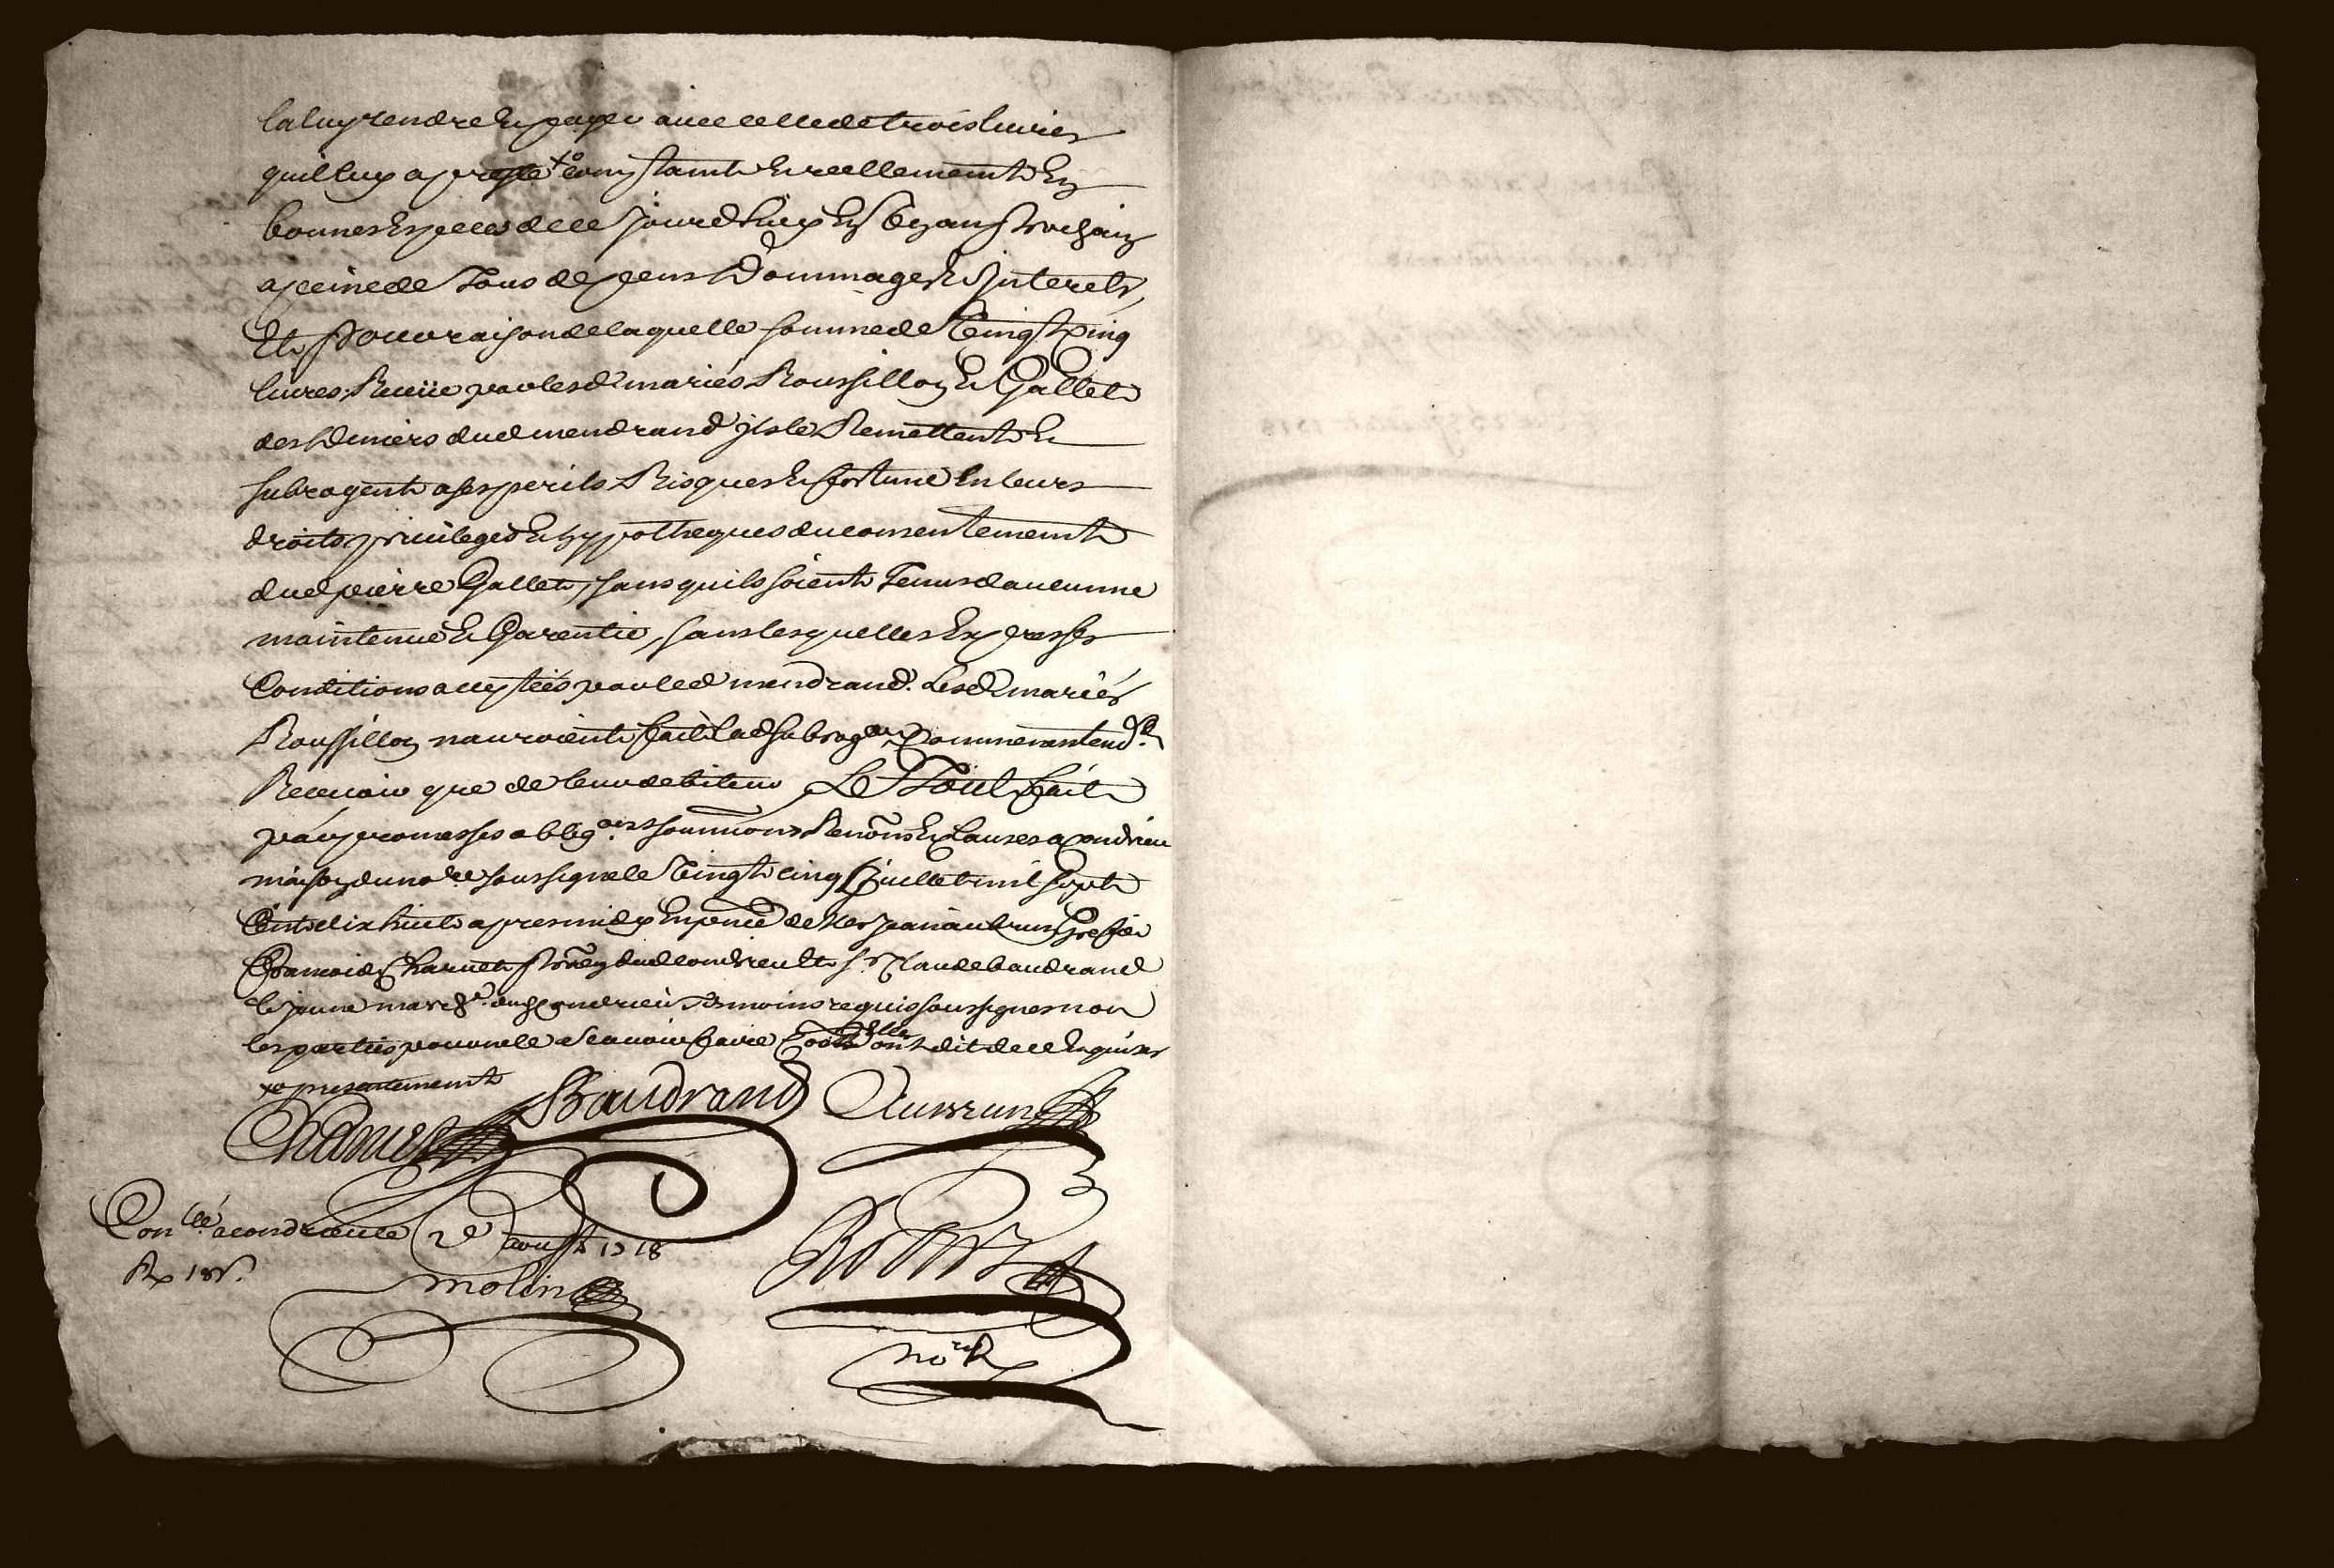 la luy rendre et payer avec celle de trois livres
quil luy a preste +o comptamt et reellememt En
bonnes Especes de ce jourdhuy En Un an prochain
a peine de Tous depens Dommages et Interets,
Et Pour raison de laquelle somme de Vingt Cinq
livres Receüe par lesd. mariés Roussillon et Gallet
des Deniers dud mendrand ils le Remettent et
subrogent a ses perils Risques et fortune En leurs
droits privileges et hypotheques du consentement
dud pierre Gallet, sans quils soient Tenus daucunne
maintenue et Garentie, sans lesquelles Expresses
Conditions acceptées par led mendrand. Lesd. mariés
Roussillon nauroient fait lad subrogaon Comme nentendt
Recevoir que de leur debiteur Le Tout fait
par promesses obligaons soumions Renons et Clauses a Condrieu
maison du nore soussigné le Vingt cinq Juillet mil sept
Cents dix huit apres midy En pnce de Jean aubrun Greffier
François Charnet pron dud condrieu et sr Claude baudrand
le jeune march. aud Condrieu Temoins requis soussignes non
les parties pour ne le Scavoir faire ont dit de ce Enquises
+o presentement
Charnet Baudrand Aubrun
Conllé a condrieu le 2e aoust 1718
Rx 12s.
molin
nore R